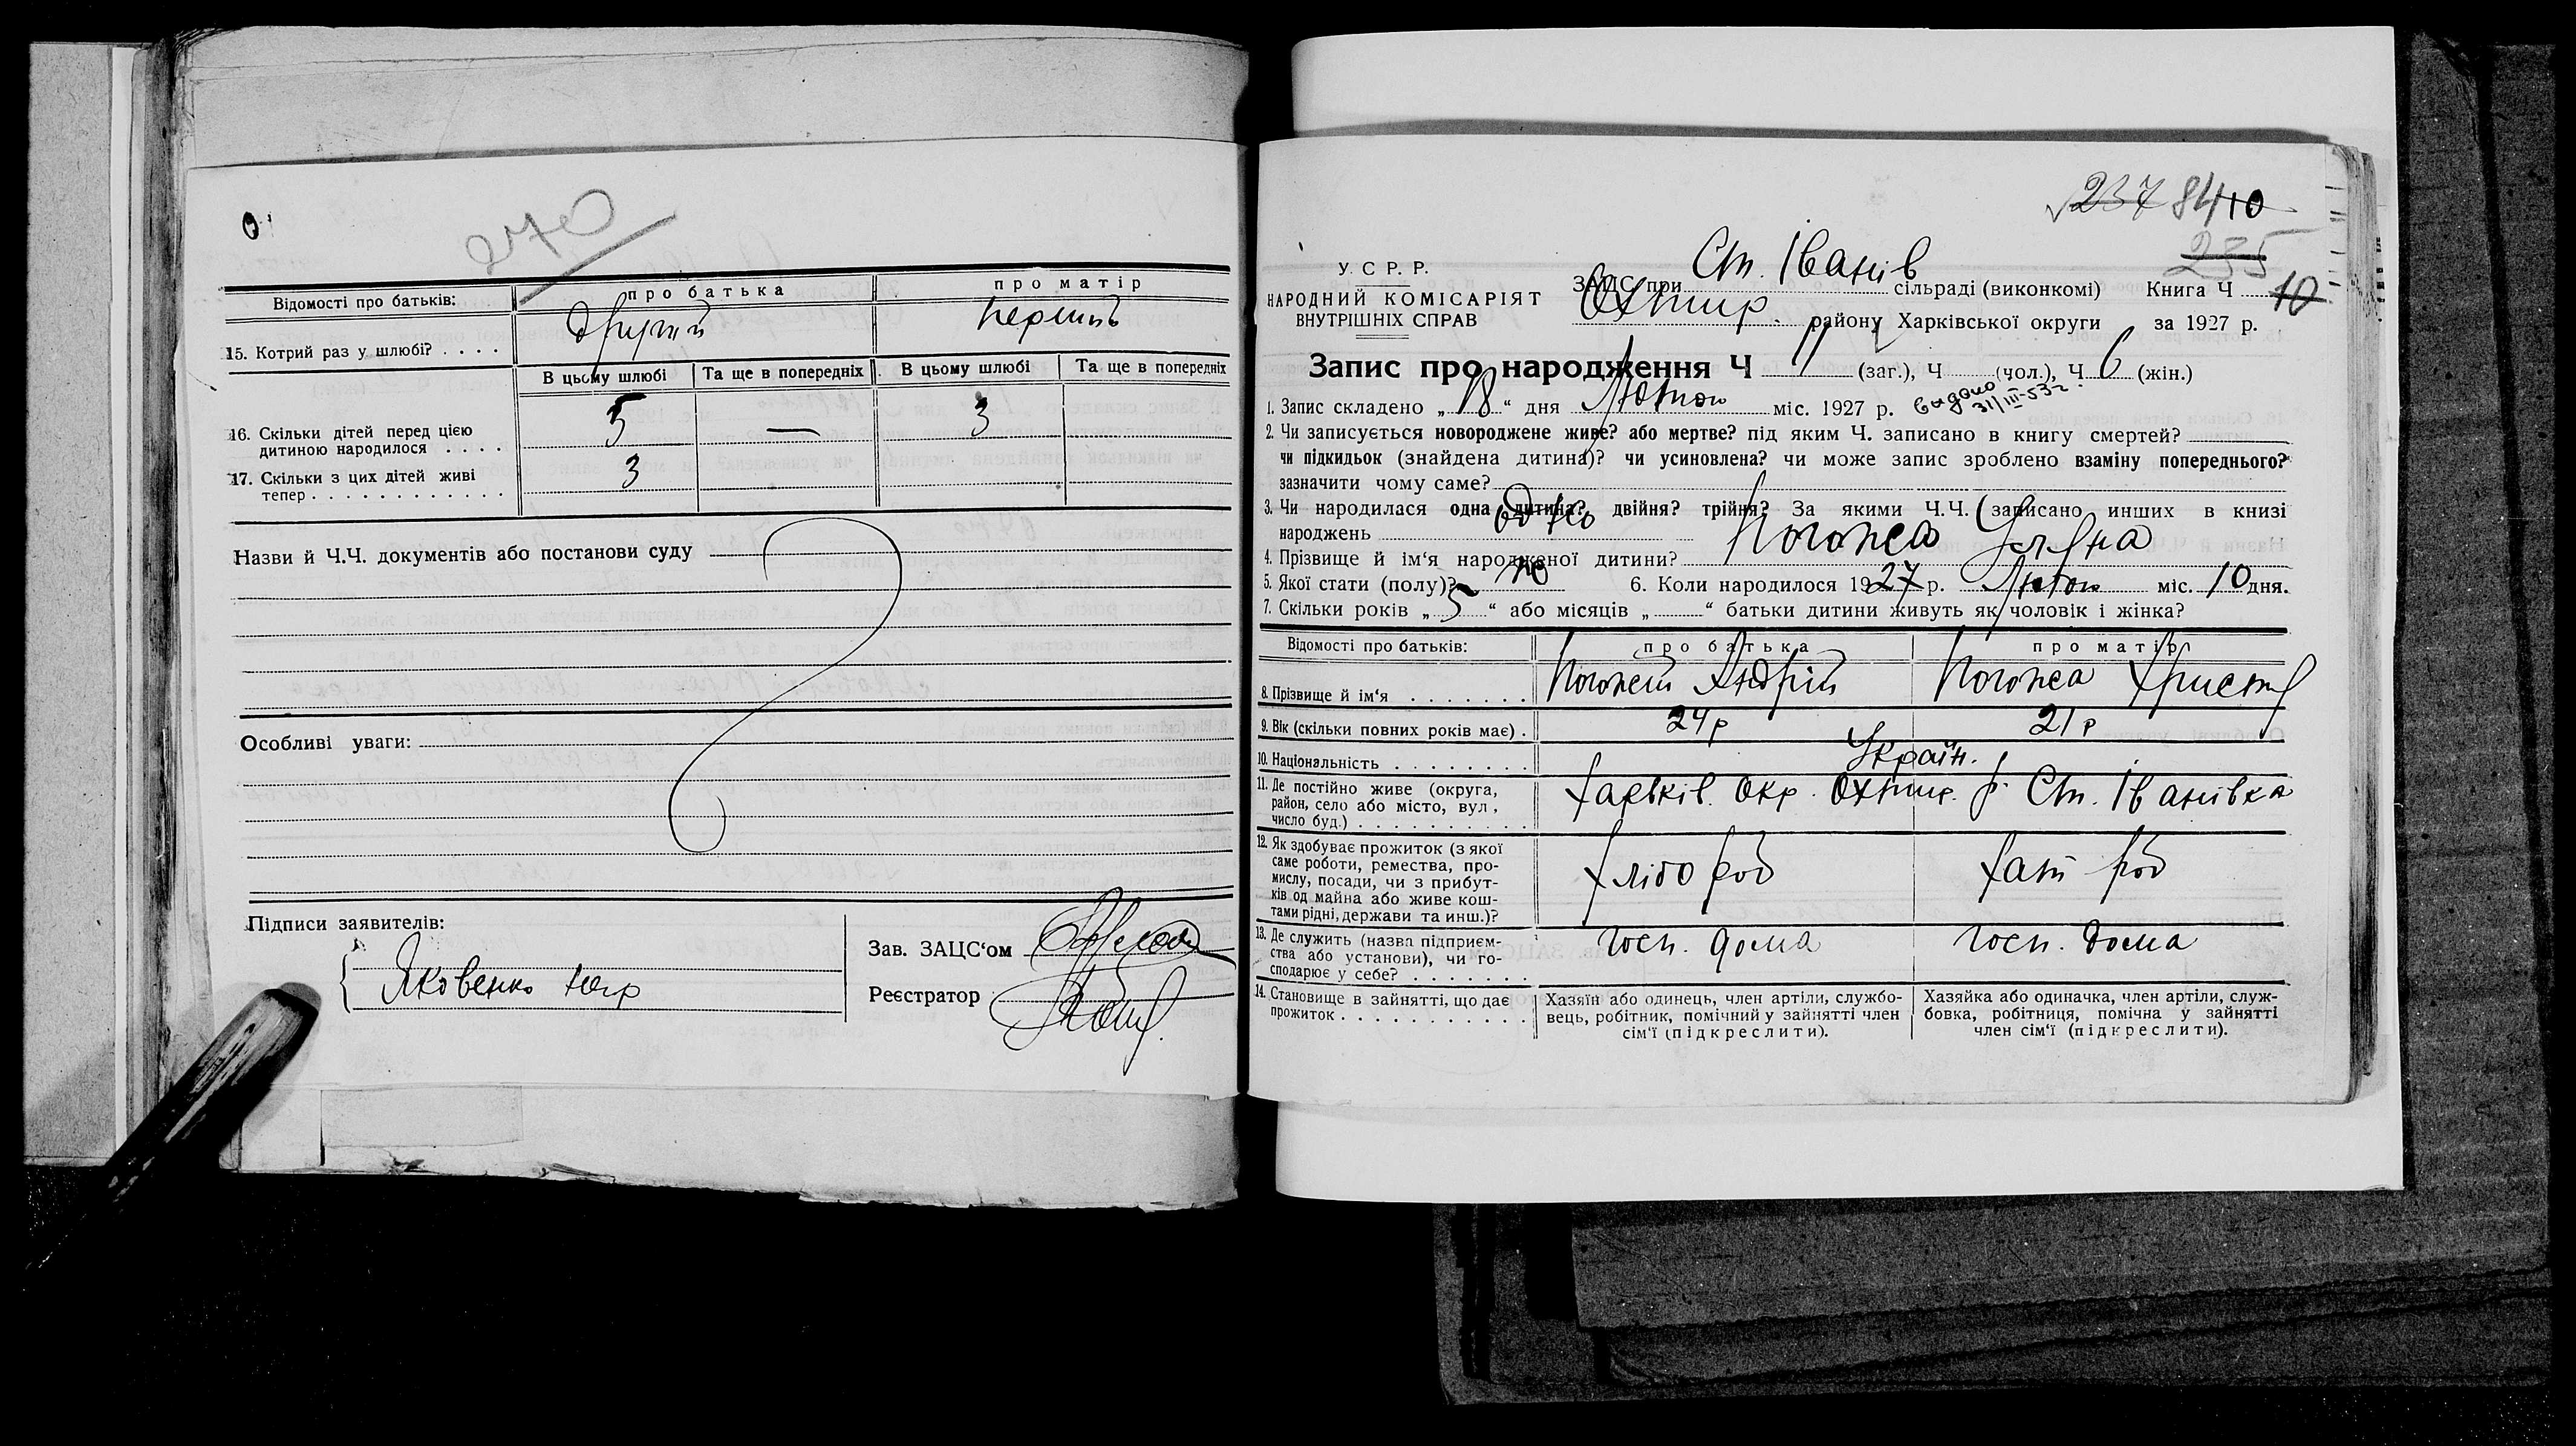 270
Відомості про батьків: про батька про матір
15. Котрий раз у шлюбі? . . . . другий перший
В цьому шлюбі Та ще в попередніх В цьому шлюбі Та ще в попередніх
16. Скільки дітей перед цією дитиною народилося . . . . 5 — 3
17. Скільки з цих дітей живі тепер . . . . . . . . . . . . 3
Назви й Ч.Ч. документів або постанови суду
Особливі уваги:
Підписи заявителів:
Яковенко
Зав. ЗАЦС‘ом
Реєстратор
237 84 10
235
У. С. Р. Р.
НАРОДНИЙ КОМІСАРІЯТ
ВНУТРІШНІХ СПРАВ
ЗАЦС при Ст. Іванів сільраді (виконкомі) Книга Ч 10
Охтир. району Харківської округи за 1927 р.
Запис про народження Ч 11 (заг.), Ч (чол.), Ч 6 (жін.)
1. Запис складено „ 18 “ дня Лютого міс. 1927 р. видано 31/III-53 г.
2. Чи записується новороджене живе? або мертве? під яким Ч. записано в книгу смертей?
чи підкидьок (знайдена дитина)? чи усиновлена? чи може запис зроблено взаміну попереднього?
зазначити чому саме?
3. Чи народилася одна дитина? двійня? трійня? За якими Ч.Ч. записано инших в книзі
народжень одно
4. Прізвище й ім‘я народженої дитини? Погожа Уляна
5. Якої стати (полу)? жо 6. Коли народилося 1927 р. Лютого міс. 10 дня.
7. Скільки років „ 5 “ або місяців „ “ батьки дитини живуть як чоловік і жінка?
Відомості про батьків: про батька про матір
8. Прізвище й ім‘я . . . . . . . Погожий Андрій Погожа Христя
9. Вік (скільки повних років має) . 24 р 21 р
10. Національність . . . . . . . . Україн.
11. Де постійно живе (округа, район, село або місто, вул, число буд.) . . . . . . . . . . Харьків. Окр. Охтир. р. Ст. Іванівка
12. Як здобуває прожиток (з якої саме роботи, ремества, промислу, посади, чи з прибутків од майна або живе коштами рідні, держави та инш.)? Хлібороб Хат роб
13. Де служить (назва підприємства або установи), чи господарює у себе? . . . . . . . Госп. дома Госп. дома
14. Становище в зайнятті, що дає прожиток . . . . . . . . . . . Хазяїн або одинець, член артіли, службовець, робітник, помічний у зайнятті член сім‘ї (підкреслити). Хазяйка або одиначка, член артіли, службовка, робітниця, помічна у зайнятті член сім‘ї (підкреслити).